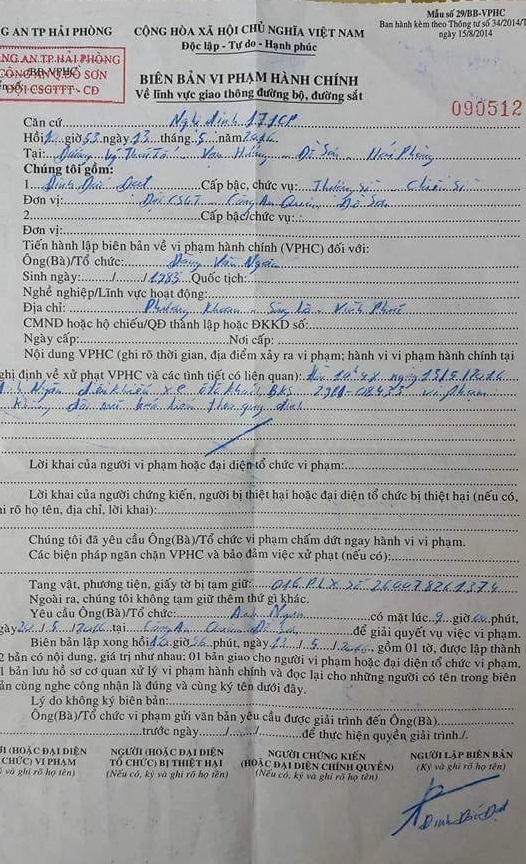 G AN TP HẢI PHÒNG
CỘNG HÒA XÃ HỘI CHỦ NGHĨA VIỆT NAM
Độc lập - Tự do - Hạnh phúc
Mẫu số 29/BB-VPHC
Ban hành kèm theo Thông tư số 34/2014/T
ngày 15/8/2014
NG AN.TP.HẢI PHÒNG
CÔNG AN Q.ĐỒ SƠN
ĐỘI CSGTTT - CĐ
BB-VPHC
BIÊN BẢN VI PHẠM HÀNH CHÍNH
Về lĩnh vực giao thông đường bộ, đường sắt
090512
Căn cứ Nghị định 171CP
Hồi giờ 53 ngày 13 tháng 5 năm 2016
Tại: Đường Lý Thái Tổ Vạn Hương Đồ Sơn Hải Phòng
Chúng tôi gồm:
1. Đinh Đức Đạt Cấp bậc, chức vụ: Thượng sĩ Chiến sĩ
Đơn vị: Đội CSGT Công An Quận Đồ Sơn
2. Cấp bậc/chức vụ:
Đơn vị:
Tiến hành lập biên bản về vi phạm hành chính (VPHC) đối với:
Ông(Bà)/Tổ chức: Văn Ngân
Sinh ngày: / / 1983 Quốc tịch:
Nghề nghiệp/Lĩnh vực hoạt động:
Địa chỉ: Phương Khoan Sông Lô Vĩnh Phúc
CMND hoặc hộ chiếu/QĐ thành lập hoặc ĐKKD số:
Ngày cấp: Nơi cấp:
Nội dung VPHC (ghi rõ thời gian, địa điểm xảy ra vi phạm; hành vi vi phạm hành chính tại
ghị định về xử phạt VPHC và các tình tiết có liên quan): ngày 13/5/2016
Anh Ngân điều khiển xe ô tô khách BKS vi phạm:
Không quy định
Lời khai của người vi phạm hoặc đại diện tổ chức vi phạm:
Lời khai của người chứng kiến, người bị thiệt hại hoặc đại diện tổ chức bị thiệt hại (nếu có,
i rõ họ tên, địa chỉ, lời khai):
Chúng tôi đã yêu cầu Ông(Bà)/Tổ chức vi phạm chấm dứt ngay hành vi vi phạm.
Các biện pháp ngăn chặn VPHC và bảo đảm việc xử phạt (nếu có):
Tang vật, phương tiện, giấy tờ bị tạm giữ: 01 GPLX số 260078261374
Ngoài ra, chúng tôi không tạm giữ thêm thứ gì khác.
Yêu cầu Ông(Bà)/Tổ chức: Anh Ngân có mặt lúc 9 giờ 00 phút,
gày / 5 / 2016 tại Công An Quận Đồ Sơn để giải quyết vụ việc vi phạm.
Biên bản lập xong hồi giờ phút, ngày / 5 / 2016, gồm 01 tờ, được lập thành
2 bản có nội dung, giá trị như nhau; 01 bản giao cho người vi phạm hoặc đại diện tổ chức vi phạm,
1 bản lưu hồ sơ cơ quan xử lý vi phạm hành chính và đọc lại cho những người có tên trong biên
ản cùng nghe công nhận là đúng và cùng ký tên dưới đây.
Lý do không ký biên bản:
Ông(Bà)/Tổ chức vi phạm gửi văn bản yêu cầu được giải trình đến Ông(Bà)
trước ngày / / để thực hiện quyền giải trình./.
I (HOẶC ĐẠI DIỆN
CHỨC) VI PHẠM
ý và ghi rõ họ tên)
NGƯỜI (HOẶC ĐẠI DIỆN
TỔ CHỨC) BỊ THIỆT HẠI
(Nếu có, ký và ghi rõ họ tên)
NGƯỜI CHỨNG KIẾN
(HOẶC ĐẠI DIỆN CHÍNH QUYỀN)
(Nếu có, ký và ghi rõ họ tên)
NGƯỜI LẬP BIÊN BẢN
(Ký và ghi rõ họ tên)
Đinh Đức Đạt